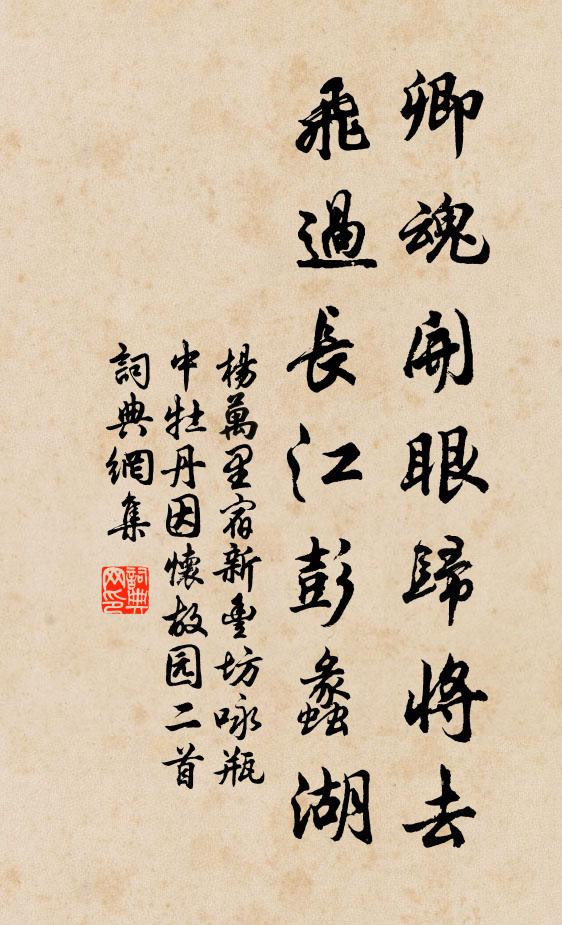 卿魂開眼歸將去
飛過長江彭蠡湖
楊萬里宿新豐坊咏瓶
中牡丹因懷故园二首
詞典網集
詞典网印